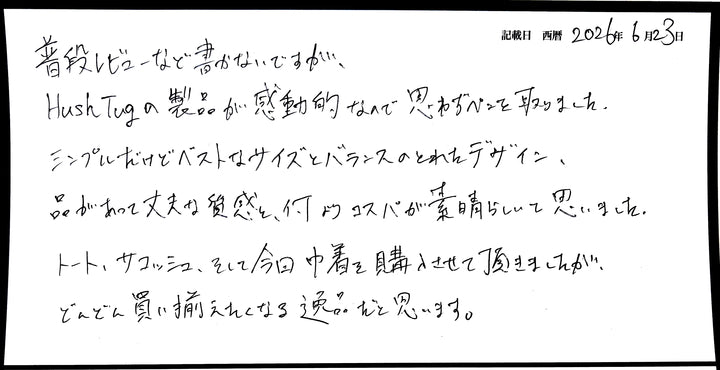 記載日 西暦 2026年 6月23日
普段レビューなど書かないですが、
HushTugの製品が感動的なので思わずペンを取りました。
シンプルだけどベストなサイズとバランスのとれたデザイン、
品があって丈夫な質感と、何よりコスパが素晴らしいて思いました。
トート、サコッシュ、そして今回巾着を購入させて頂きましたが、
どんどん買い揃えたくなる逸品だと思います。